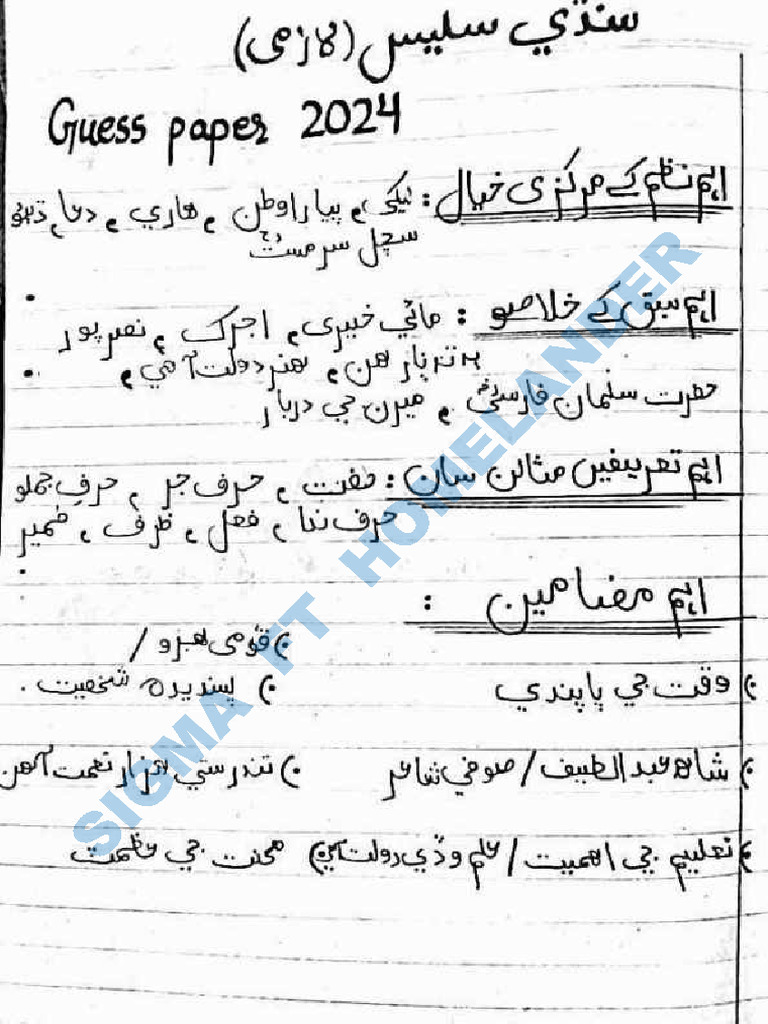 سنڌي سليس (لازمی)
Guess paper 2024
اہم نظم کے مرکزی خیال : نیکی ، پیارا وطن ، هاري ، دعا ،
سچل سرمستؒ
اہم سبق کے خلاصو : مائي خيري ، اجرک ، نصرپور
هنر دولت آهي ،
حضرت سلمان فارسيؓ ، ميرن جي دربار
اہم تعریفیں مثالن سان : صفت ، حرف جر ، حرف جملو
حرف ندا ، فعل ، ظرف ، ضمير
اہم مضامین :
قومی هيرو /
وقت جي پابندي
پسنديده شخصيت .
شاھ عبداللطيف / صوفي شاعر
تندرستي هزار نعمت آهن
تعليم جي اهميت / علم وڏي دولت آهي
محنت جي عظمت
SIGMA FT HOMELANDER